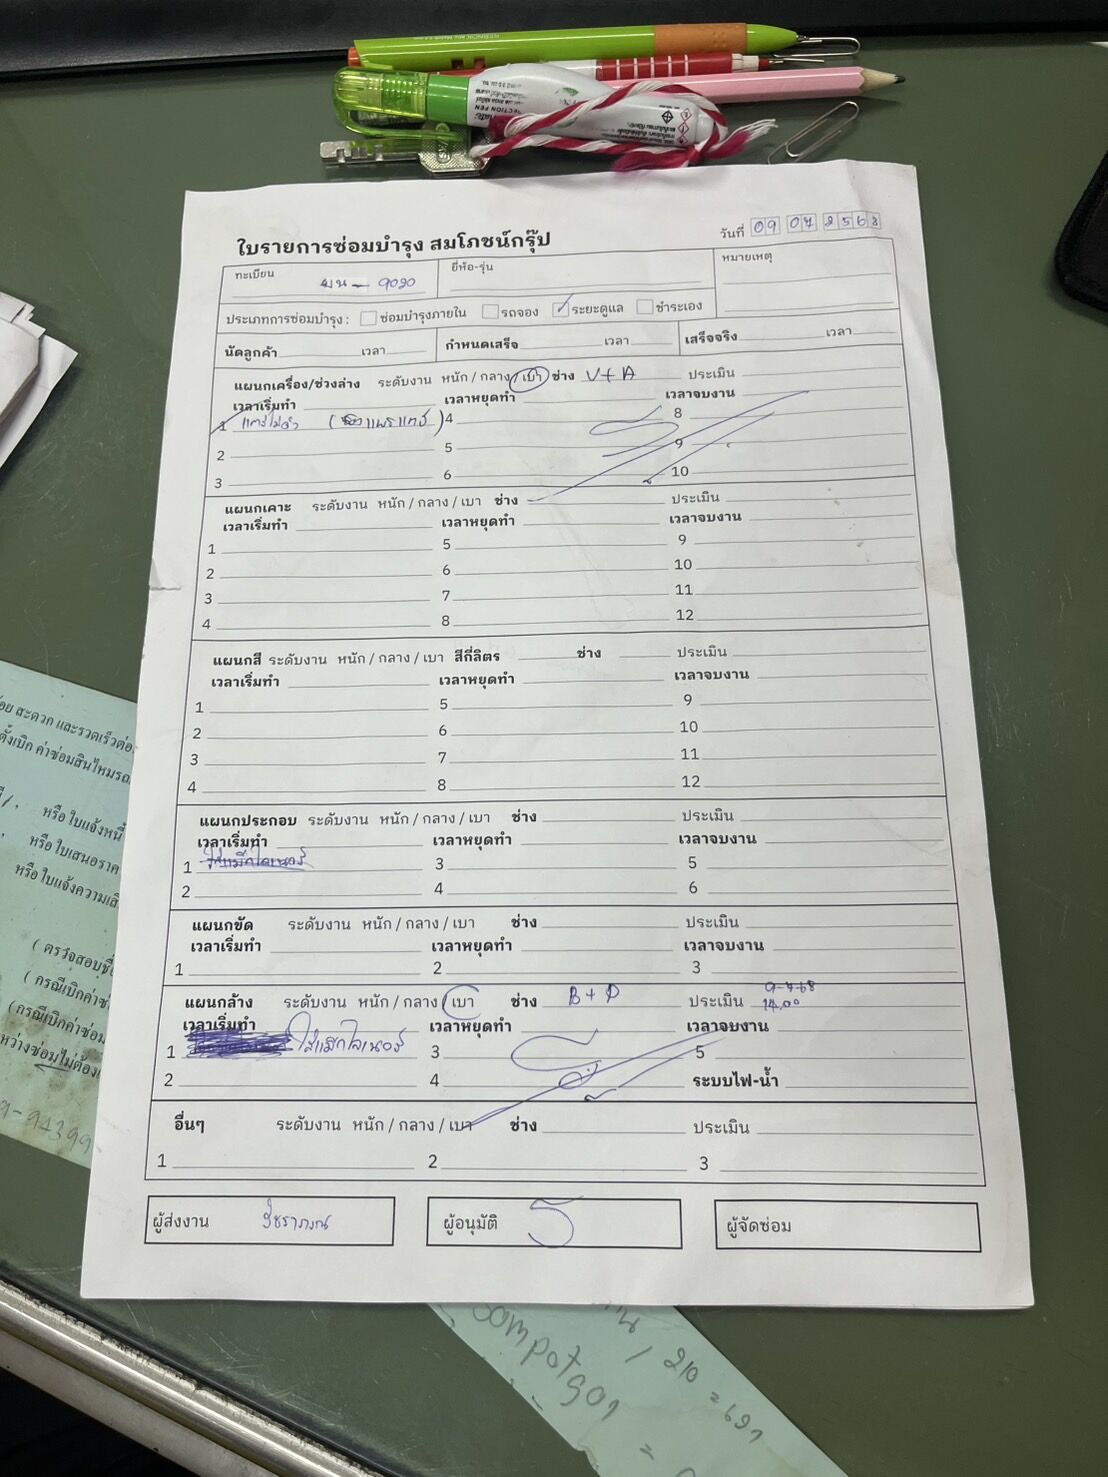 ใบรายการซ่อมบำรุง สมโภชน์กรุ๊ป
วันที่ 09 07 2568
ทะเบียน ฆน - 9020
ยี่ห้อ-รุ่น
หมายเหตุ
ประเภทการซ่อมบำรุง : ซ่อมบำรุงภายใน รถจอง ระยะดูแล ชำระเอง
นัดลูกค้า เวลา กำหนดเสร็จ เวลา เสร็จจริง เวลา
แผนกเครื่อง/ช่วงล่าง ระดับงาน หนัก / กลาง / เบา ช่าง V + A ประเมิน
เวลาเริ่มทำ เวลาหยุดทำ เวลาจบงาน
1 4 8
2 5 9
3 6 10
แผนกเคาะ ระดับงาน หนัก / กลาง / เบา ช่าง ประเมิน
เวลาเริ่มทำ เวลาหยุดทำ เวลาจบงาน
1 5 9
2 6 10
3 7 11
4 8 12
แผนกสี ระดับงาน หนัก / กลาง / เบา สีกี่ลิตร ช่าง ประเมิน
เวลาเริ่มทำ เวลาหยุดทำ เวลาจบงาน
1 5 9
2 6 10
3 7 11
4 8 12
แผนกประกอบ ระดับงาน หนัก / กลาง / เบา ช่าง ประเมิน
เวลาเริ่มทำ เวลาหยุดทำ เวลาจบงาน
1 3 5
2 4 6
แผนกขัด ระดับงาน หนัก / กลาง / เบา ช่าง ประเมิน
เวลาเริ่มทำ เวลาหยุดทำ เวลาจบงาน
1 2 3
แผนกล้าง ระดับงาน หนัก / กลาง / เบา ช่าง B + P ประเมิน 9-7-68
14.00
เวลาเริ่มทำ เวลาหยุดทำ เวลาจบงาน
1 ใส่แม็กไลเนอร์ 3 5
2 4 ระบบไฟ-น้ำ
อื่นๆ ระดับงาน หนัก / กลาง / เบา ช่าง ประเมิน
1 2 3
ผู้ส่งงาน วัชราภรณ์
ผู้อนุมัติ
ผู้จัดซ่อม
สะดวก และรวดเร็วต่อ
ค่าซ่อมสินไหมรถ
หรือ ใบแจ้งหนี้
หรือ ใบเสนอราคา
หรือ ใบแจ้งความเสี
( ตรวจสอบชื่
( กรณีเบิกค่าซ
(กรณีเบิกค่าซ่อม
หว่างซ่อมไม่ต้อง
-94399
/ 210 = 691